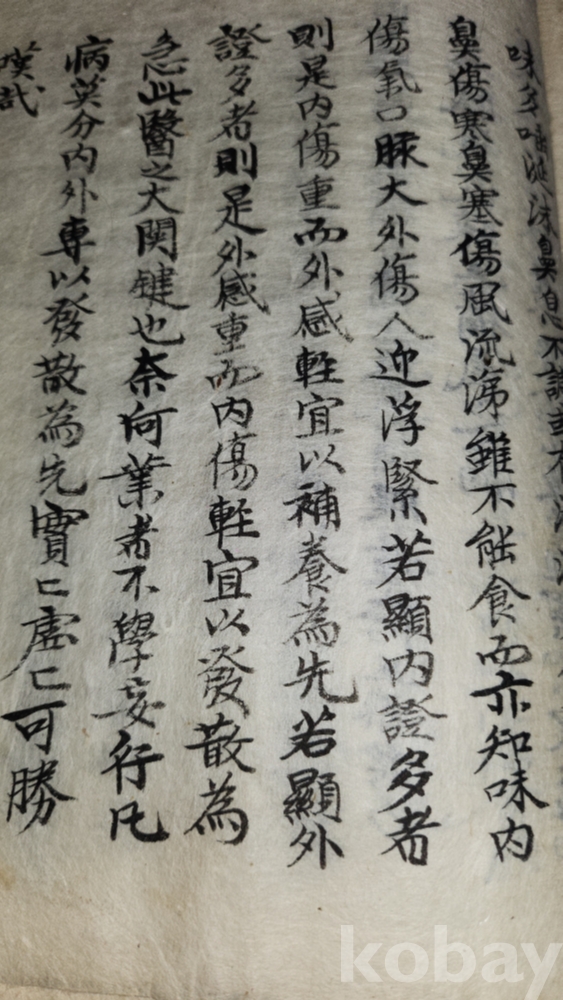 味多唾涎洟鼻息不
鼻傷寒鼻塞傷風流涕雖不能食而亦知味內
傷氣口脈大外傷人迎浮緊若顯內證多者
則是內傷重而外感軽宜以補養為先若顯外
證多者則是外感重而內傷軽宜以發散為
急此醫之大関鍵也奈何業者不學妄行凡
病莫分內外專以發散為先實匕虛匕可勝
嘆哉
kobay